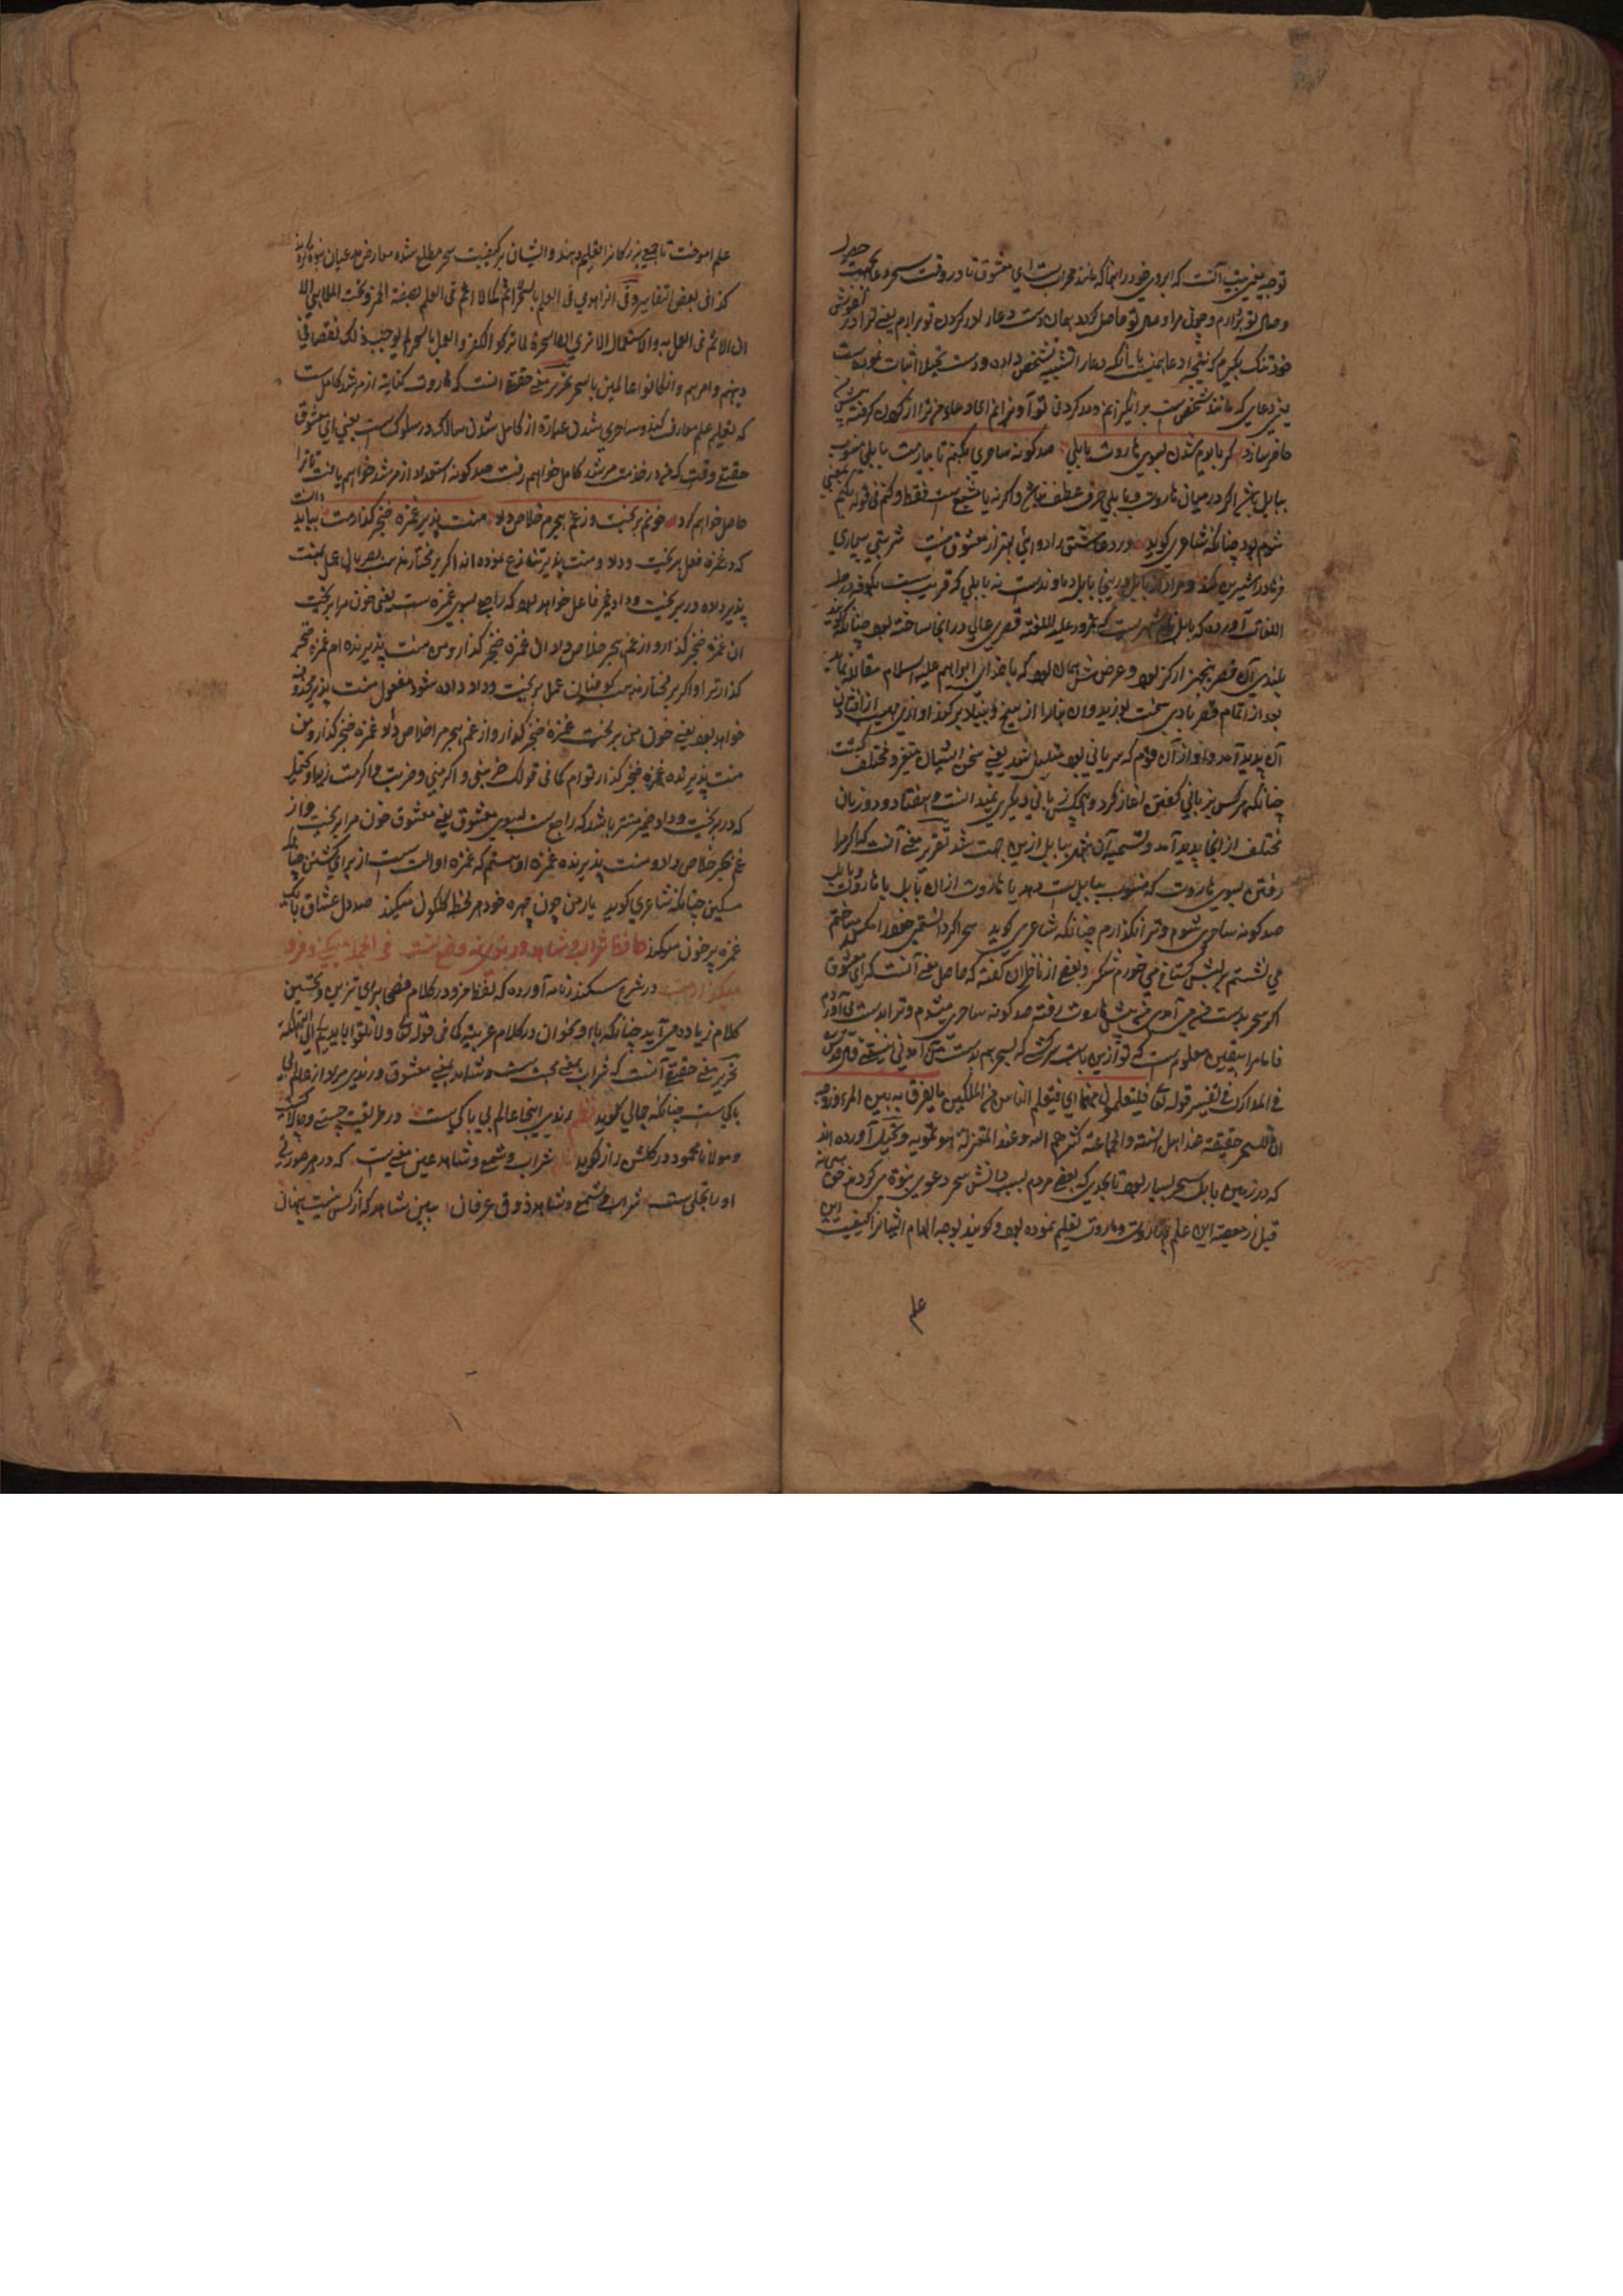 توجیه معنی بیت آنست که ابروی خود را بنما که مانند محرابست ای معشوق تا در وقت سحر دعا بجهت حصول
وصال تو برآرم و چون مراد وصل تو حاصل گردد همان دست دعا را در گردن تو برآرم یعنی ترا در آغوش
خود تنگ بگیرم که نتیجه دعا همین
یعنی دعایی که مانند شخص است
حاضر سازد گر بایدم شدن سوی هاروت بابلی صد گونه ساحری بکنم تا بیارمت بابلی منسوب
ببابل باشد اگر در میان هاروت و بابلی حرف عطف نباشد و اگر نه یا مشبع است فقط و کنم فی قوله بکنم بمعنی
شوم بود چنانکه شاعری گوید درد عاشق را دوائی بهتر از معشوق نیست شربت بیماری
فرهاد را شیرین کند و مراد از بابل درینجا بابل دماوندست نه بابلی که قریب ست بکوفه در حل
اللغات آورده که بابل نام شهریست که نمرود علیه اللعنه قصری عالی در آنجا ساخته بود چنانکه گویند
بلندی آن قصر پنجهزار گز بود و عرض ش همان بود که با خدای ابراهیم علیه السلام مقابله نماید
بعد از اتمام قصر بادی سخت بوزید و آن بنا را از بیخ و بنیاد برکند و آوازی مهیب از افتادن
آن پدید آمد و از آن قوم که سریانی بود متبلبل شد یعنی سخن ایشان متغیر و مختلف گشت
چنانکه هر کس بزبانی گفتن آغاز کرد و هیچکس زبانی دیگری نمیدانست و هفتاد و دو زبان
مختلف از آنجا پدید آمد و تسمیه آن شهر ببابل ازین جهت شد تقریر معنی آنست که اگر مرا
رفتن بسوی هاروت که منسوب ببابل ست دهد یا هاروت از آن بابل یا هاروت و بابل
صد گونه ساحری شوم و ترا نگذارم چنانکه شاعری گوید سحر اگر دانستمی خود را مگس می ساختم
می نشستم بر لبش گستاخ می خوردم شکر و بعضی از فاضلان گفته که حاصل معنی آنست که ای معشوق
اگر سحر بدست من می آمدی من پیش هاروت رفته صد گونه ساحری میشدم و ترا بدست می آوردم
فاما مرا بیقین معلوم است که تو ازین بابت سرکشی که بسحر هم بدست من آمدنی نیستی
فی المدارک فی تفسیر قوله تعالی فیتعلمون منهما ای فیتعلم الناس من الملکین ما یفرقون به بین المرء وزوجه
ان للسحر حقیقة عند اهل السنة والجماعة کثرهم الله و عند المعتزلة هو تمویه و تخییل آورده اند
که در زمین بابل سحر بسیار بود تا بحدی که بعضی مردم بسبب دانش سحر دعوی نبوة می کردند حق سبحانه
قبل از معصیة این علم بهاروت و ماروت تعلیم نموده بود و گویند بوجه الهام ایشانرا کیفیت این
علم
علم آموخت تا جمیع بزرگانرا تعلیم دهند و ایشان بر کیفیت سحر مطلع شده معارض مدعیان نبوة گردند
کذا فی بعض التفاسیر و فی الزاهدی فی العلم بالسحر اثم کما لا اثم فی العلم بصفة الخمر و نحت الملاهی الا
ان الاثم فی العمل به و الاستعمال الا تری ان السحرة لما ترکوا الکفر و العمل بالسحر لم یوجب ذلک نقصا فی
دینهم و امرهم و ان کانوا عالمین بالسحر تحریر معنی حقیقة آنست که هاروت کنایة از مرشد کامل ست
که تعلیم علم معارف کند و ساحری شدن عبارة از کامل شدن سالک در سلوک ست یعنی ای معشوق
حقیقی وقتی که من در خدمت مرشد کامل خواهم رفت صد گونه استعداد از مرشد خواهم یافت تا ترا
حاصل خواهم کرد خونم بریخت وز غم هجرم خلاص داد منت پذیر غمزه خنجر گذارمت
که در غمزه فعل بریخت و داد و منت پذیر تنازع نموده اند اگر بر مختار مذهب بصریان عمل بمنت
پذیر داده در بریخت و داد ضمیر فاعل خواهد بود که راجع بسوی غمزه ست یعنی خون مرا بریخت
آن غمزه خنجر گذار و از غم هجر خلاص داد آن غمزه خنجر گذار و من منت پذیرنده ام غمزه خنجر
گذار ترا و اگر بر مختار مذهب کوفیان عمل بریخت و داد داده شود مفعول منت پذیر محذوف
خواهد بود یعنی خون من بریخت غمزه خنجر گذار و از غم هجر مرا خلاص داد غمزه خنجر گذار و من
منت پذیرنده غمزه خنجر گذار توام کما فی قولک ضربنی و اکرمنی و ضربت و اکرمت زیدا و تحتمل
که در بریخت و داد ضمیر مستتر باشد که راجع ست بسوی معشوق یعنی معشوق خون مرا بریخت و از
غم هجر خلاص داد و منت پذیرنده غمزه او هستم که غمزه او آلت ست از برای کشتن چنانکه
مسکین چنانکه شاعری گوید یار من چون چهره خود هر لحظه گلگون میکند صد دل عشاق با یک
غمزه پر خون میکند حافظ شراب و شاهد و رندی نه وضع تست فی الجمله میکنی و فرو
میگذارمت در شرح سکندرنامه آورده که لفظ فرو در کلام فصحی برای تزیین و تحسین
کلام زیاده می آید چنانکه با و نحو آن در کلام عربیه کما فی قوله تعالی ولا تلقوا بایدیکم الی التهلکة
تحریر معنی حقیقی آنست که شراب بمعنی محبت ست و شاهد بمعنی معشوق و رندی مراد از عالم بی
باکی ست چنانکه جمالی گوید نظم رندی اینجا عالم بی باکی ست در طریقت چستی و چالاکی ست
و مولانا محمود در گلشن راز گوید شراب و شمع و شاهد عین معنی ست که در هر صورتی
او را تجلی ست شراب و شمع و شاهد ذوق عرفان ببین شاهد که از کس نیست پنهان